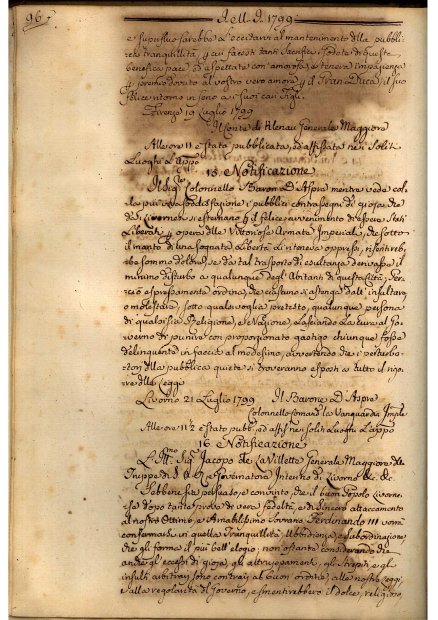 96.
A dell. D. 1799.
e superfluo sarebbe a eccitarvi al mantenimento della pubbli
ca tranquillità, p. cui faceste tanti sacrifici; Godete di questa
benefica pace aspettata con amorosa, e tenera impazienza
al vostro vero amore p. il Gran Duca, il suo
felice ritorno in seno a i suoi cari Figli.
Firenze 19 Luglio 1799
Il Conte di Klenau Generale Maggiore
Alle ore 11 è stata pubblicata, ed affissata nei Soliti
Luoghi d'Appo
15. Notificazione
Il Sig.e Colonnello Baron D'Aspre mentre vede col
la più viva sodisfazione i pubblici contrassegni di gioia, che
dai Livornesi si esternano p. il felice avvenimento di essere stati
Liberati p. opera delle Vittoriose Armate Imperiali, che sotto
il manto di una sognata Libertà li teneva oppressi, risentireb
be sommo dolore, se da tal trasporto di esultanza derivasse il
minimo disturbo a qualunque degl'Abitanti di questa Città; Per
ciò espressamente ordina, che ciascuno si astenga dall'insultare,
o molestare, sotto qualsivoglia pretesto, qualunque persona
di qualsisia Religione, e Nazione, Lasciando la cura al Go
verno di punire con proporzionato gastigo chiunque fosse
delinquente in faccia al medesimo, avvertendo che i perturba
tori della pubblica quiete si troveranno esposti a tutto il rigo
re delle Leggi
Livorno 21 Luglio 1799 Il Barone D'Aspre
Colonnello comand. la Vanguardia Imple
Alle ore 11 1/2 è stata pubb., ed affiss. nei soliti Luoghi d'appo
16. Notificazione
L'Ill.mo Sig.e Jacopo de La Villette Generale Maggiore delle
Truppe di S. A. R. e Governatore Interino di Livorno &c. &c.
Sebbene sia persuaso, e convinto, che il buon Popolo Livorne
se dopo tante prove di vera fedeltà, e di sincero attaccamento
al nostro Ottimo, e Amabilissimo Sovrano Ferdinando III vorrà
conservarsi in quella Tranquillità, Ubbidienza, e Subordinazione
che gli forma il più bell'elogio, non ostante considerando che
anche gl'eccessi di gioia, gli attruppamenti, gli strepiti, e gli
insulti arbitrari sono contrari al buon ordine, alle nostre Leggi,
e alla regolarità di Governo, e smentirebbero il dolce, religioso,